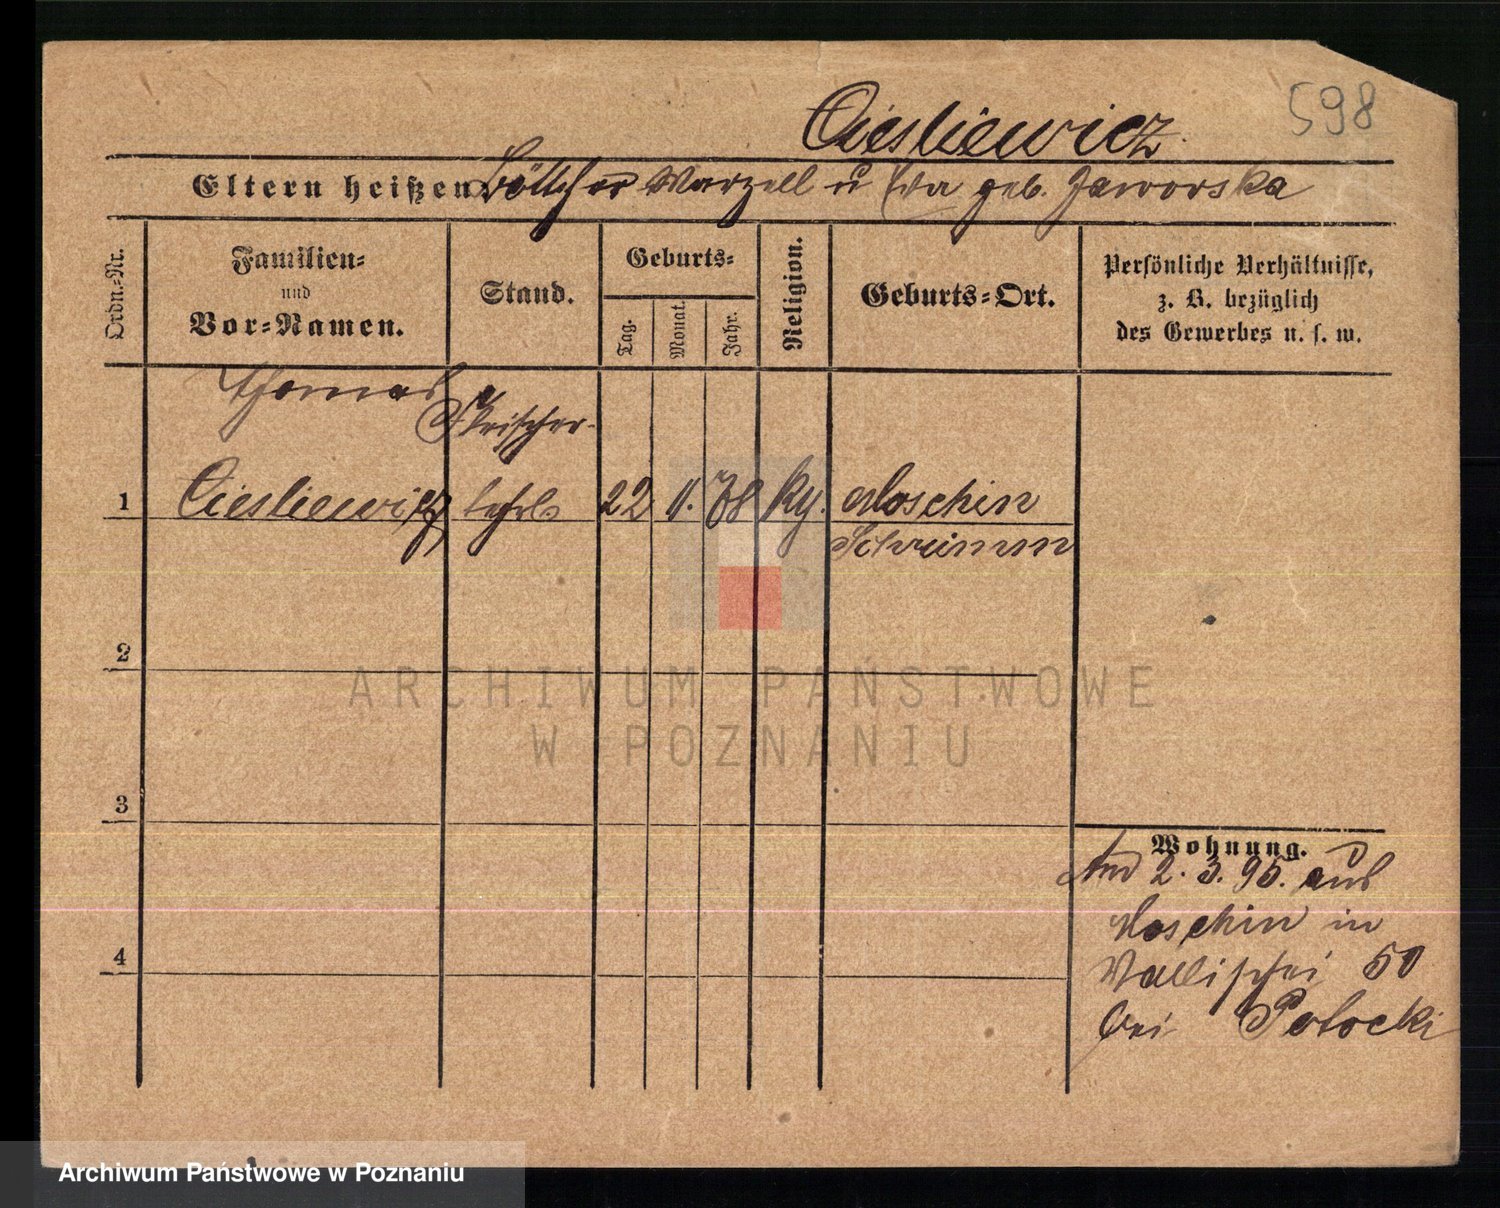 598
Ciesliewicz
Eltern heißen Böttcher Marzell u Eva geb. Jaworska
Ordn.-Nr.
Familien-
und
Vor-Namen.
Stand.
Geburts-
Tag.
Monat.
Jahr.
Religion.
Geburts-Ort.
Persönliche Verhältnisse,
z. B. bezüglich
des Gewerbes u. s. w.
Thomas
Fleischer-
1 Ciesliewicz lehrl. 22 11. 78 Moschin
Schrimm
2
3
4
Wohnung.
2. 3. 95. aus
Moschin in
Wallischei 50
bei Potocki
ARCHIWUM PAŃSTWOWE
W POZNANIU
Archiwum Państwowe w Poznaniu